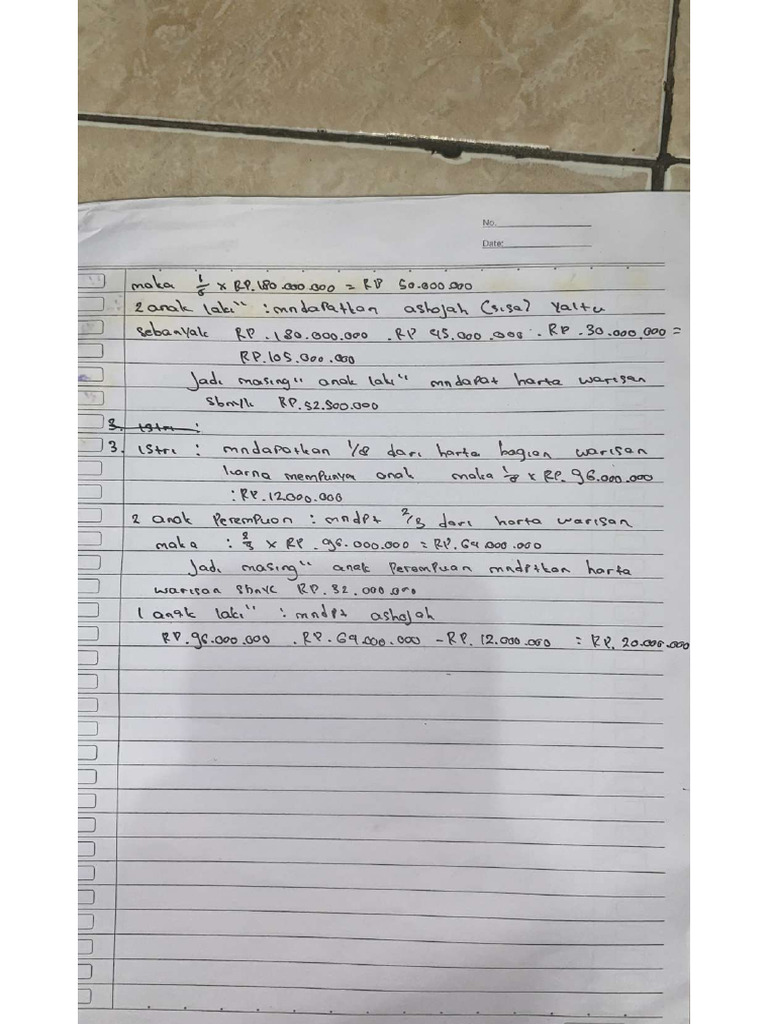 No.
Date:
maka 1/6 x RP.180.000.000 = RP 50.000.000
2 anak laki" : mndapatkan ashojah (sisa) yaitu
sebanyak RP.180.000.000 . RP 45.000.000 . RP.30.000.000 =
RP.105.000.000
Jadi masing" anak laki" mndapat harta warisan
sbnyk RP.52.500.000
3. istri :
3. istri : mndapatkan 1/8 dari harta bagian warisan
karna mempunya anak maka 1/8 x RP.96.000.000
: RP.12.000.000
2 anak Perempuan : mndpt 2/3 dari harta warisan
maka : 2/3 x RP.96.000.000 = RP.64.000.000
Jadi masing" anak Perempuan mndptkan harta
warisan sbnyk RP.32.000.000
1 anak laki" : mndpt ashojah
RP.96.000.000 . RP.64.000.000 - RP.12.000.000 = RP.20.000.000